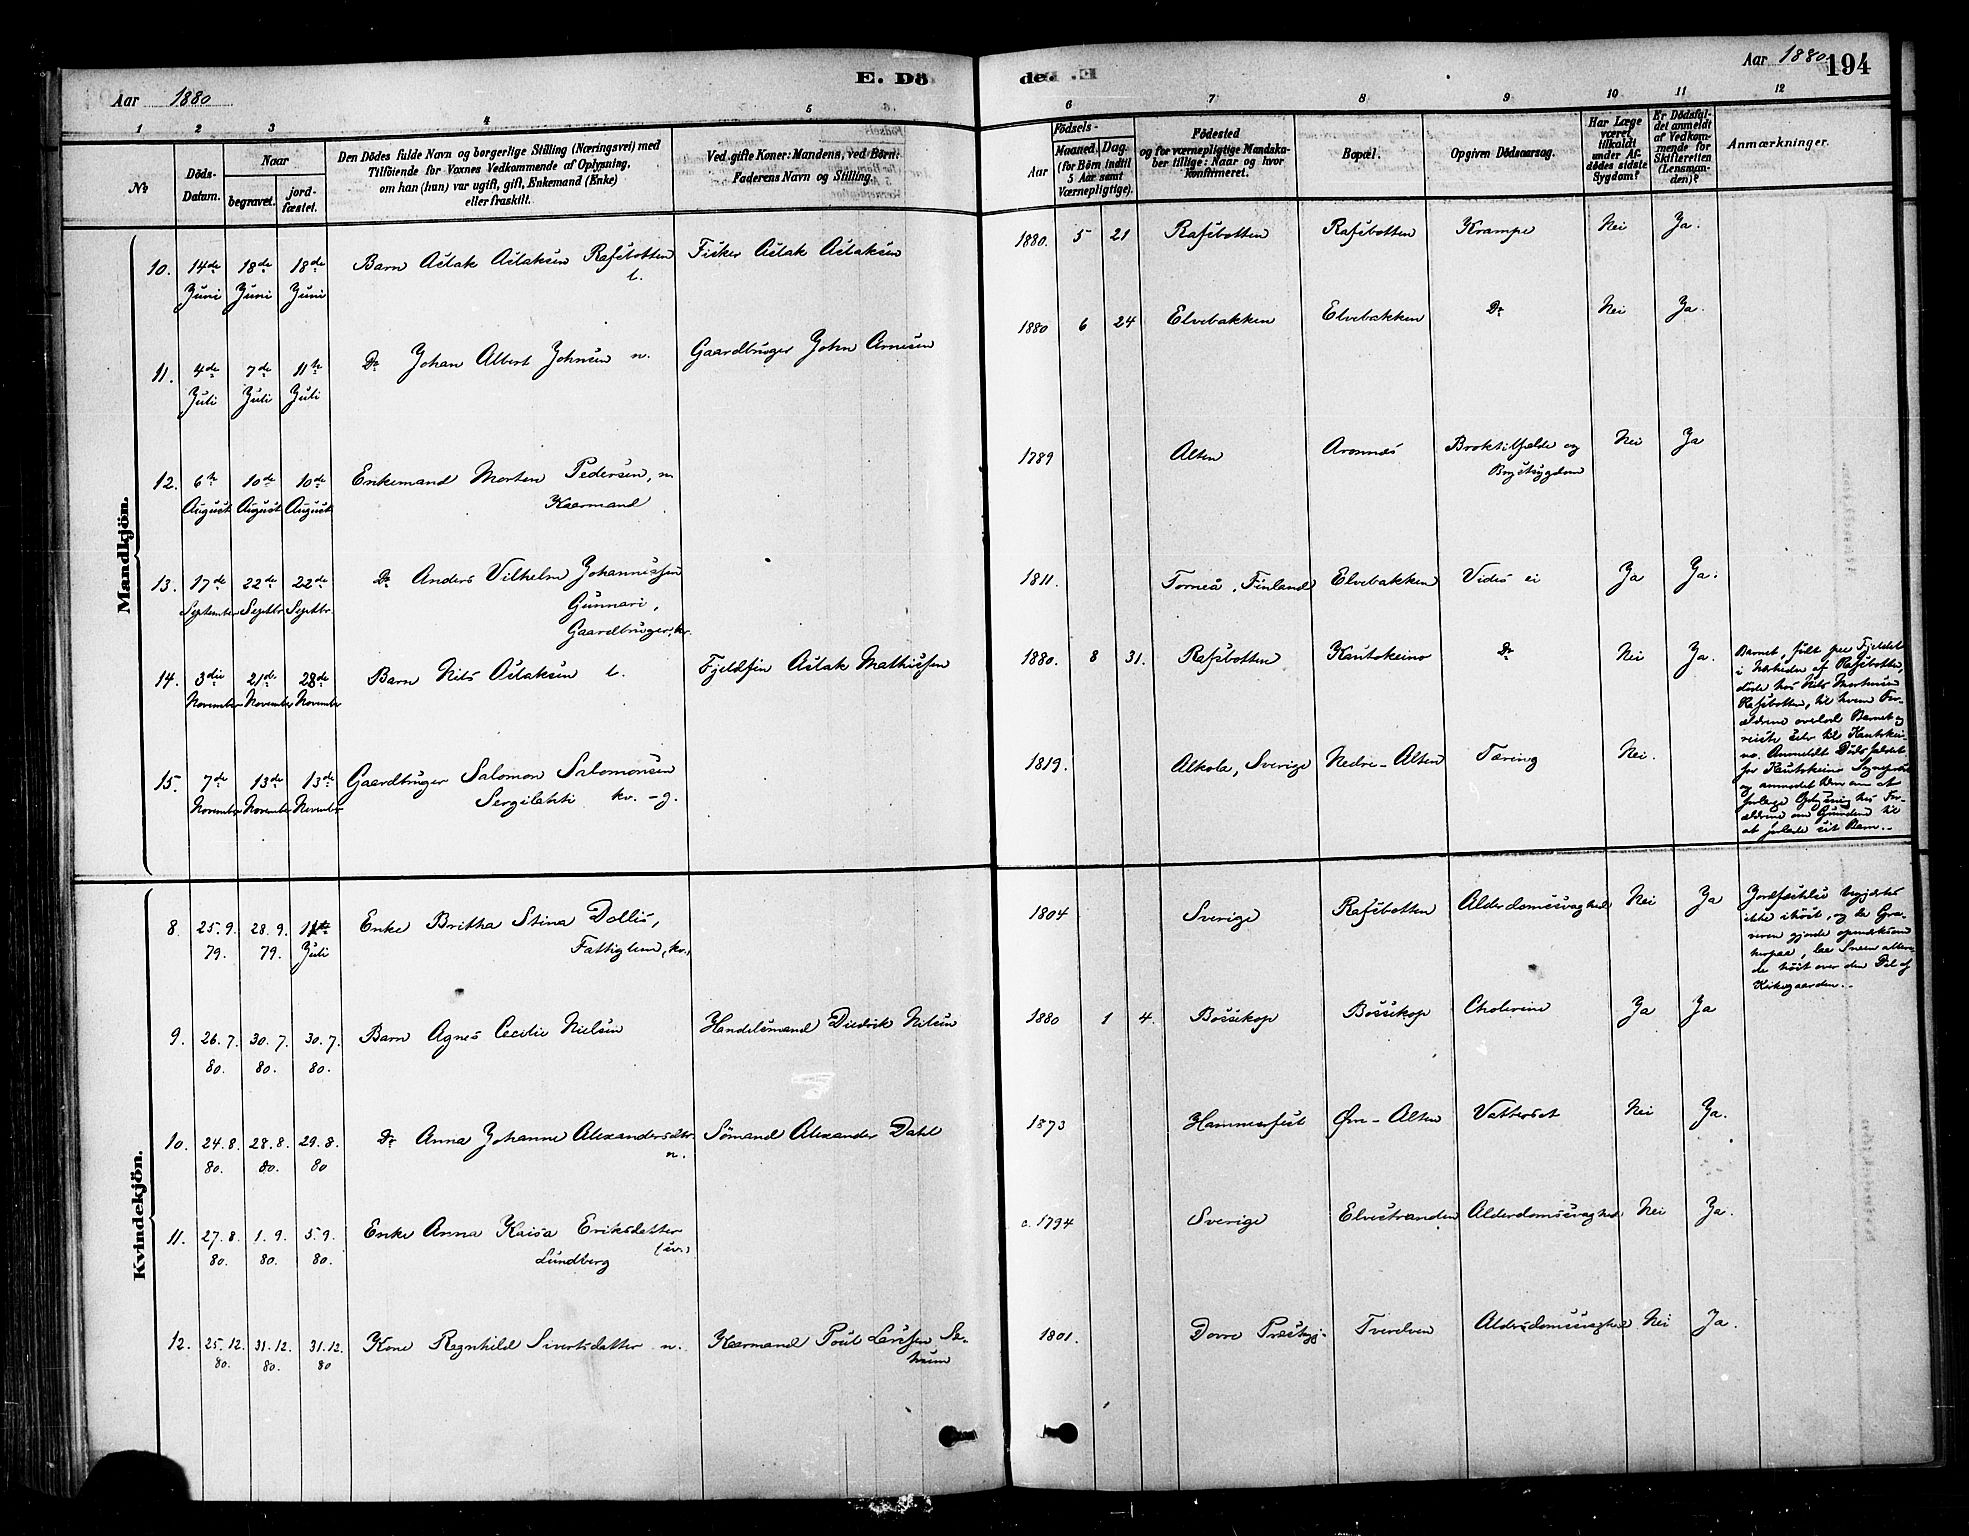 Aar 1880
E. Dö
de.
Aar 1880
194
1 2 3 4 5
6 7 8 9 10 11 12
No
Döds-Datum.
Naar
begravet.
jord-fæstet.
Den Dödes fulde Navn og borgerlige Stilling (Næringsvei) med
Tilföiende for Voxnes Vedkommende af Oplysning,
om han (hun) var ugift, gift, Enkemand (Enke)
eller fraskilt.
Ved gifte Koner: Mandens, ved Börn:
Faderens Navn og Stilling.
Födsels-
Aar
Maaned. Dag.
(for Börn indtil
5 Aar samt
Værnepligtige).
Födested
og for værnepligtige Mandska-
ber tillige: Naar og hvor
konfirmeret.
Bopæl.
Opgiven Dödsaarsag.
Har Læge
været
tilkaldt
under Af-
dödes sidste
Sygdom?
Er Dödsfal-
det anmeldt
af Vedkom-
mende for
Skifteretten
(Lensman-
den)?
Anmærkninger.
Mandkjön.
10. 14de Juni 18de Juni 18de Juni Barn Aslak Aslaksen Rafsbotten l. Fisker Aslak Aslaksen 1880. 5 21 Rafsbotten Rafsbotten Krampe Nei Ja.
11. 4de Juli 7de Juli 11te Juli Do Johan Albert Johnsen n. Gaardbruger John Arnesen 1880 6 24 Elvebakken Elvebakken Do Nei Ja.
12. 6te August 10de August 10de August Enkemand Morten Pedersen, n. Kaarmand 1789 Alten Aronnæs Broktilfælde og Brystsygdom Nei Ja
13. 17de September 22de Septbr. 22de Septbr. Do Anders Vilhelm Johannessen Gunnari, Gaardbruger, kv. 1811. Torneå, Finland Elvebakken Vides ei Ja Ja.
14. 3die November 21de November 28de November Barn Nils Aslaksen l. Fjeldfin Aslak Mathissen 1880. 8 31. Rafsbotten Kautokeino Do Nei Ja.
Barnet, født paa Fjeldet
i Nærheden af Rafsbotten,
døde hos Nils Mortensen
Rafsbotten, til hvem For-
ældrene overlod Barnet og
reiste selv til Kautokei-
no. Anmeldt Dødsfaldet
for Kautokeino Sognepræst
og anmodet ham om at
forlange Oplysning hos For-
ældrene om Grunden til
at forlade sit Barn.-
15. 7de November 13de November 13de November Gaardbruger Salomon Salomonsen Sergilahti kv. - g. 1819. Alkola, Sverige Nedre-Alten Tæring Nei.
Kvindekjön.
8. 25. 9. 79. 28. 9. 79. 11te Juli Enke Britha Stina Dollis, Fattiglem, kv. 1804 Sverige Rafsbotten Alderdomssvaghed Nei Ja
Jordfæstelse begjærtes
ikke ihöst, og da Gra-
veren gjorde opmærksom
herpaa, laa Sneen allere-
de höit over den Del af
Kirkegaarden.-
9. 26. 7. 80. 30. 7. 80. 30. 7. 80. Barn Agnes Cecilie Nielsen Handelsmand Diedrik Nilsen 1880 1 4. Bossekop Bossekop Cholerine Ja Ja
10. 24. 8. 80. 28. 8. 80. 29. 8. 80 Do Anna Johanne Alexandersdtr. n. Sömand Alexander Dahl 1873 Hammerfest Øvre-Alten Vattersot Nei Ja.
11. 27. 8. 80. 1. 9. 80. 5. 9. 80. Enke Anna Kaisa Eriksdatter Lundberg (sv.) c. 1794 Sverige Elvestranden Alderdomssvaghed Nei Ja.
12. 25. 12. 80. 31. 12. 80. 31. 12. 80 Kone Regnhild Sivertsdatter n. Kaarmand Poul Larssen 1801. Dovre Præstegj. Tverelven Alderdomssvaghed Nei Ja.